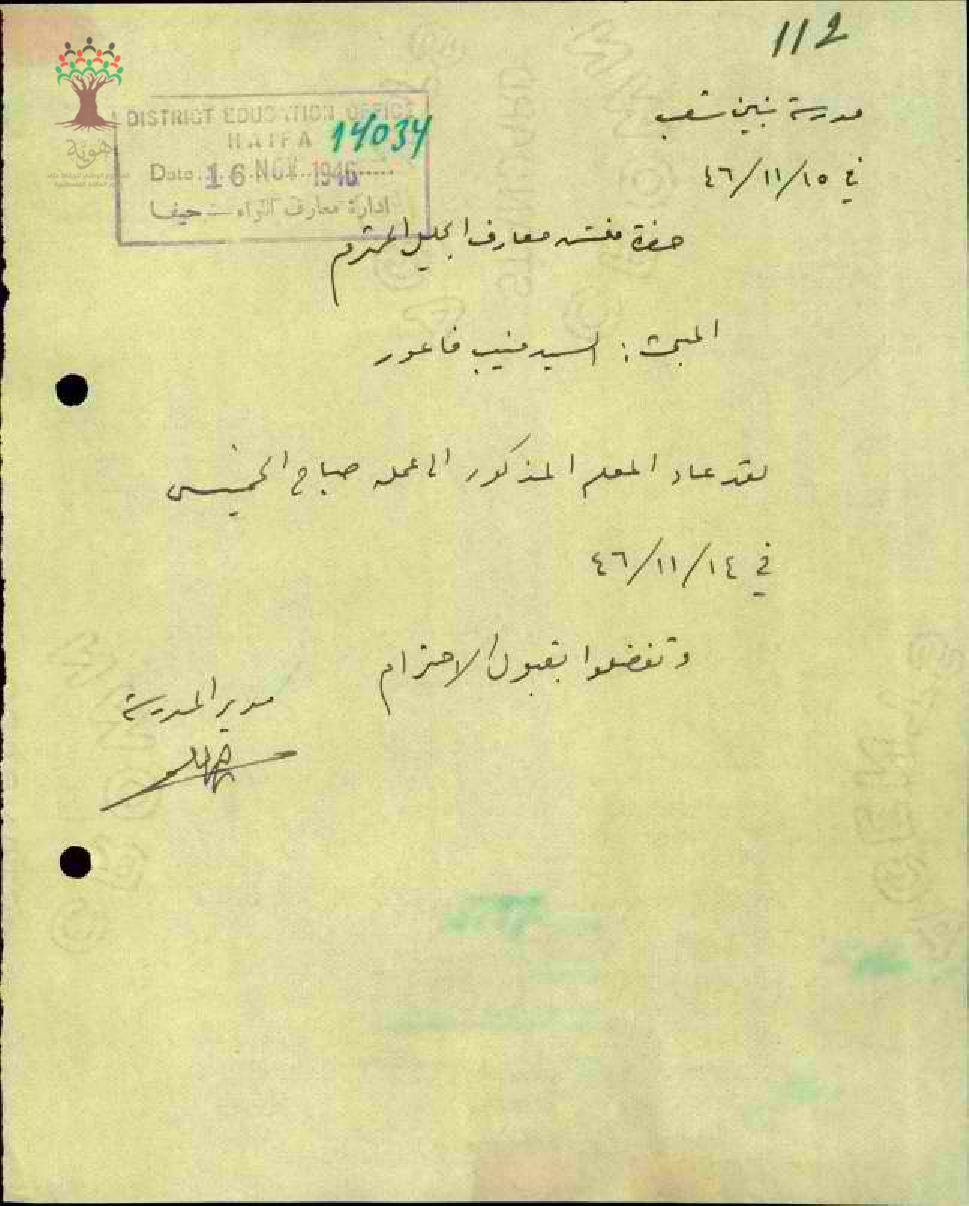 112
DISTRICT EDUCATION OFFICE
HAIFA
14034
Date 16 NOV 1946
ادارة معارف اللواء - حيفا
هوية
مدرسة بنين شعب
في ٤٦/١١/١٥
حضرة مفتش معارف الجليل المحترم
المبحث : السيد منيب فاعور
لقد عاد المعلم المذكور الى عمله صباح الخميس
في ٤٦/١١/١٤
وتفضلوا بقبول الاحترام
مدير المدرسة